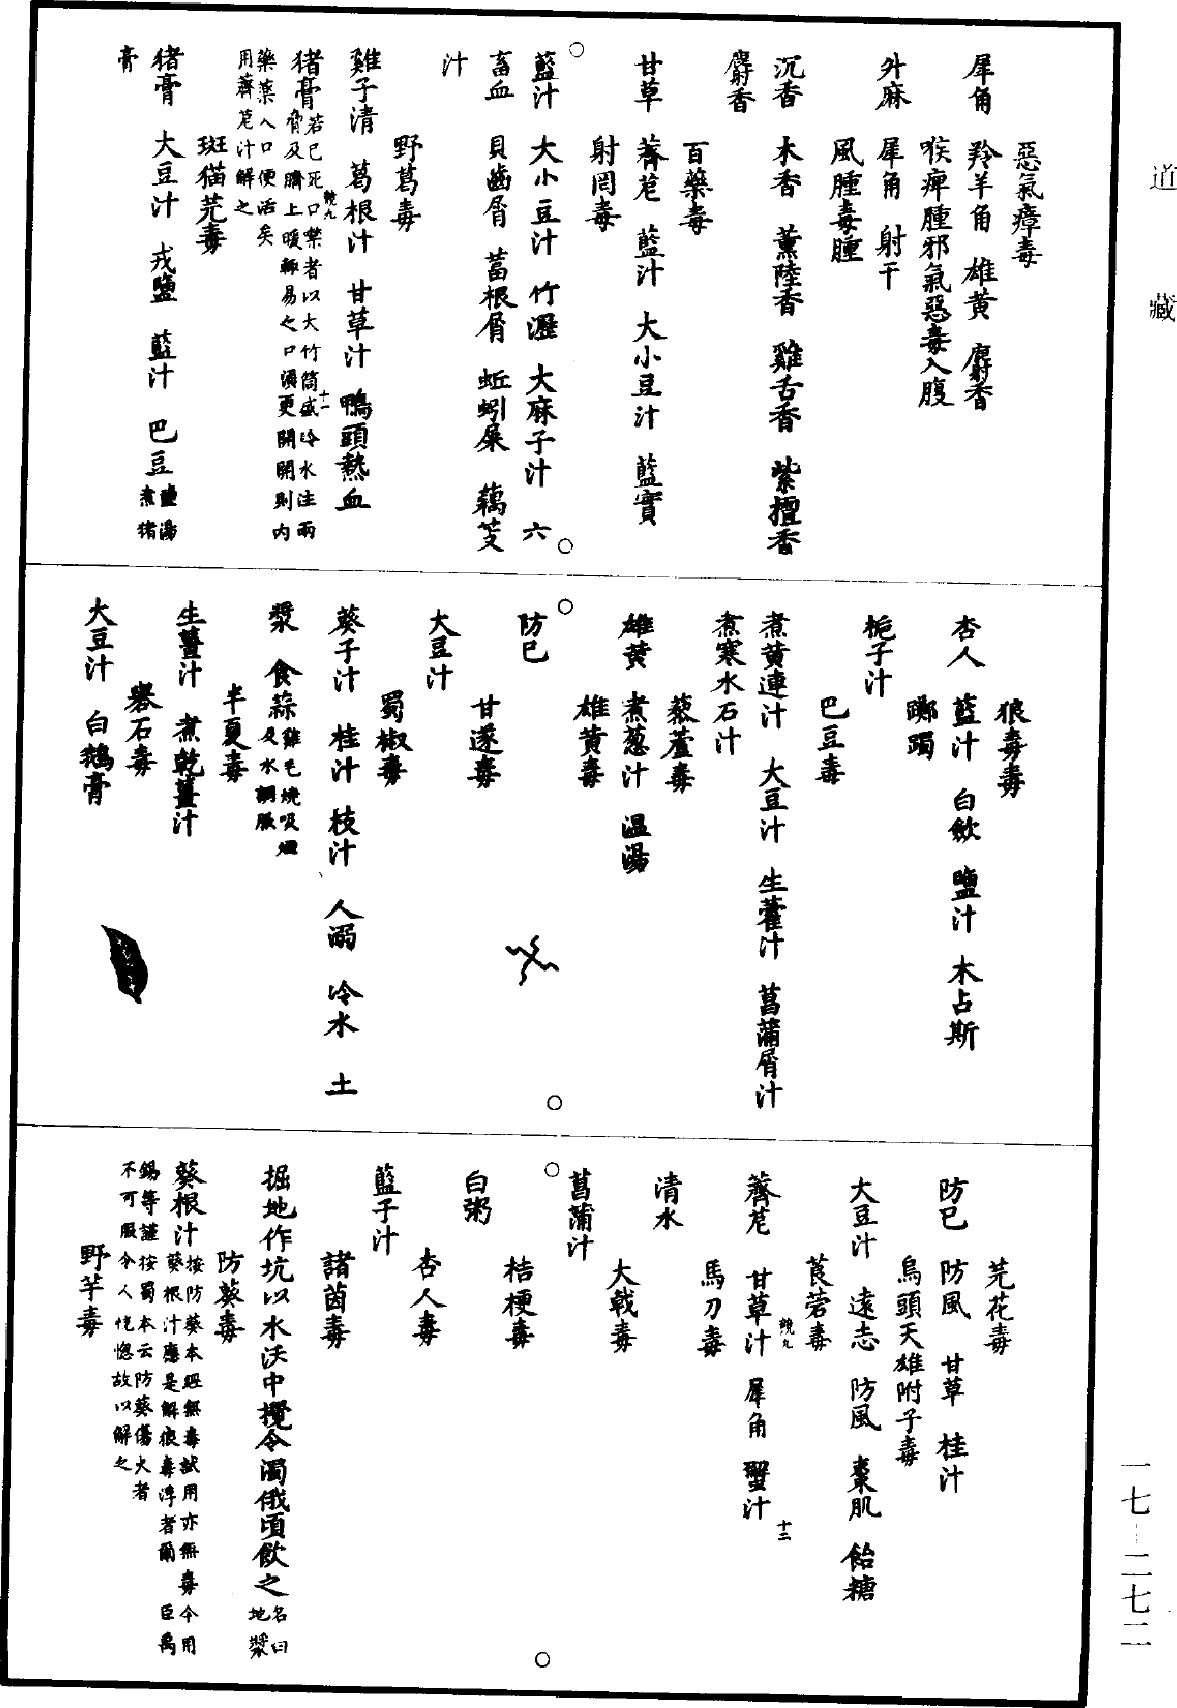 道藏
惡氣瘴毒
犀角　羚羊角　雄黃　麝香
喉痺腫邪氣惡毒入腹
升麻　犀角　射干
風腫毒腫
沉香　木香　薰陸香　雞舌香　紫檀香
麝香
百藥毒
甘草　薺苨　藍汁　大小豆汁　藍實
射罔毒
藍汁　大小豆汁　竹瀝　大麻子汁　六
畜血　貝齒屑　葍根屑　蚯蚓屎　藕芰
汁
野葛毒
雞子清　葛根汁　甘草汁　鴨頭熱血
猪膏若已死口噤者以大竹筒盛冷水注兩
脅及臍上暖輒易之口須更開開則内
藥藥入口便活矣
用薺苨汁解之
斑猫芫毒
猪膏　大豆汁　戎鹽　藍汁　巴豆鹽湯
煮猪
膏
狼毒毒
杏人　藍汁　白斂　鹽汁　木占斯
躑躅
梔子汁
巴豆毒
煮黃連汁　大豆汁　生藿汁　菖蒲屑汁
煮寒水石汁
藜蘆毒
雄黃　煮葱汁　温湯
雄黃毒
防巳
甘遂毒
大豆汁
蜀椒毒
葵子汁　桂汁　豉汁　人溺　冷水　土
漿　食蒜雞毛燒吸煙
及水調服
半夏毒
生薑汁　煮乾薑汁
礜石毒
大豆汁　白鵝膏
芫花毒
防巳　防風　甘草　桂汁
烏頭天雄附子毒
大豆汁　遠志　防風　棗肌　飴糖
莨菪毒
薺苨　甘草汁　犀角　蟹汁
馬刀毒
清水
大戟毒
菖蒲汁
桔梗毒
白粥
杏人毒
藍子汁
諸菌毒
掘地作坑以水沃中攪令濁俄頃飲之名曰
地漿
防葵毒
葵根汁按防葵本經無毒試用亦無毒今用
葵根汁應是解狼毒浮者爾　臣禹
錫等謹按蜀本云防葵傷火者
不可服令人恍惚故以解之
野芋毒
一七—二七二